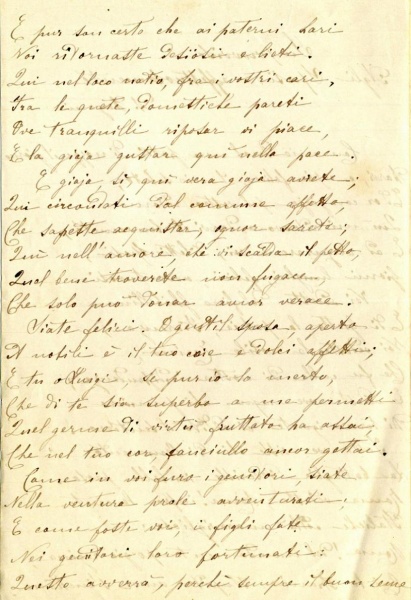 E pur son certo che ai paterni Lari
Voi ritornaste desiosi e lieti.
Qui nel loco natio, fra i vostri cari,
Fra le quete, domestiche pareti
Ove tranquilli riposar vi piace,
E la gioja gustar quì nella pace.
E gioja, sì quì vera gioja avrete;
Qui circondati dal comune affetto,
Che sapeste acquistar, ognor sarete;
Quì nell'amore, che vi scalda il petto,
Quel bene troverete non fugace
Che solo può donar amor verace.
Siate felici. O gentil sposa, aperto
A nobili è il tuo core e dolci affetti;
E tu o Luigi, se pur io lo merto,
Che di te sia superbo a me permetti
Quel germe di virtù fruttato ha assai,
Che nel tuo cor fanciullo amor gettai.
Come in voi furo i genitori, siate
Nella ventura prole avventurati.
E come foste voi, i figli fate
Nei genitori loro fortunati:
Questo avverrà, perchè sempre il buon seme